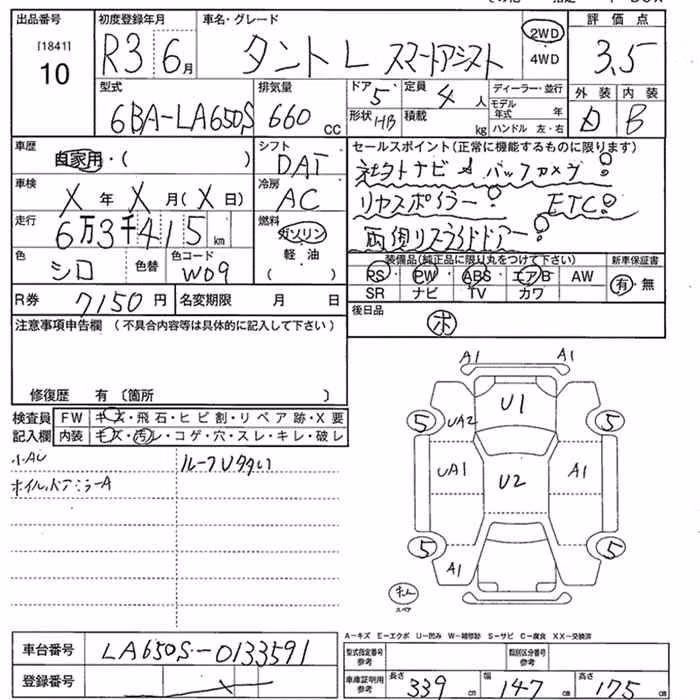 出品番号 初度登録年月 車名・グレード 評価点
[1841] 10 R3 6月 タント L スマートアシスト 2WD 4WD 3.5
型式 排気量 ドア 5 定員 4人 ディーラー・並行 外装 内装
6BA-LA650S 660 CC 形状 HB 積載 kg モデル年式 年 B
ハンドル 左・右
車歴 シフト セールスポイント(正常に機能するものに限ります)
自家用・( ) DAT 社外ナビ & バックカメラ!
車検 冷房 リヤスポイラー! ETC!
X 年 X 月 (X 日) AC 両側リスライドドアー!
走行 燃料
6万3千415 km ガソリン
軽油
( )
色 色替 色コード 装備品(純正品に限り丸をつけて下さい) 新車保証書
シロ W09 PS PW ABS エアB AW 有・無
SR ナビ TV カワ
R券 7150円 名変期限 月 日 後日品
注意事項申告欄 (不具合内容等は具体的に記入して下さい) ホ
修復歴 有〔箇所 〕
検査員 FW キズ・飛石・ヒビ割・リペア跡・X要
記入欄 内装 キズ・汚レ・コゲ・穴・スレ・キレ・破レ
小AU
ホイル、ドアミラーA
A1 A1
U1
5 UA2 5
UA1 U2 A1
5 A1 5
スペア
A-キズ E-エクボ U-凹み W-補修跡 S-サビ C-腐食 XX-交換済
車台番号 LA650S-0133591 型式指定番号 参考 類別区分番号 参考
登録番号 車庫証明用 参考 長さ 339 cm 幅 147 cm 高さ 175 cm